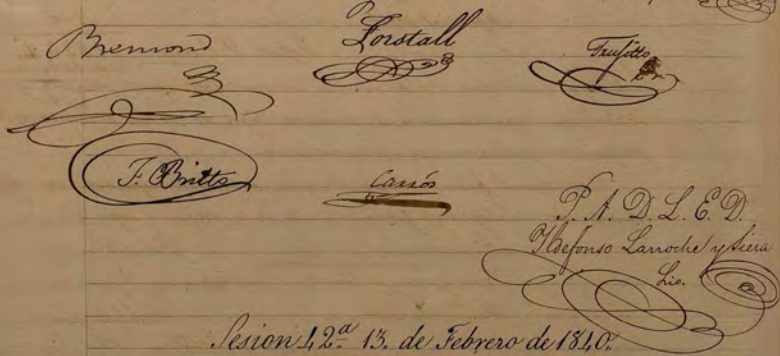 Bremond
Forstall
Trujillo
F. Britto
Carrós
P. A. D. L. E. D.
Ildefonso Larroche y Siera
Srio.
Sesion 42ª 13. de Febrero de 1840.